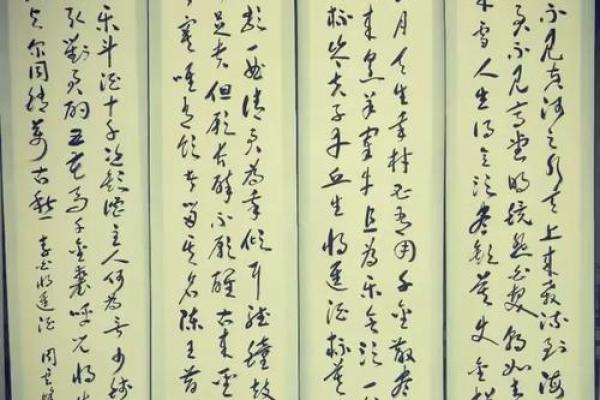 不见黄河之水天上来奔流到海
回君不见高堂明镜悲白发朝如青
成雪人生得意须尽欢莫使金樽
月天生我材必有用千金散尽
来烹羊宰牛且为乐会须一
杯岑夫子丹丘生将进酒杯莫
歌一曲请君为我倾耳听钟鼓
足贵但愿长醉不愿醒古来圣
寞唯有饮者留其名陈王昔
乐斗酒十千恣欢谑主人何为言少钱
取对君酌五花马千金裘呼儿将出
与尔同销万古愁 李白将进酒 周